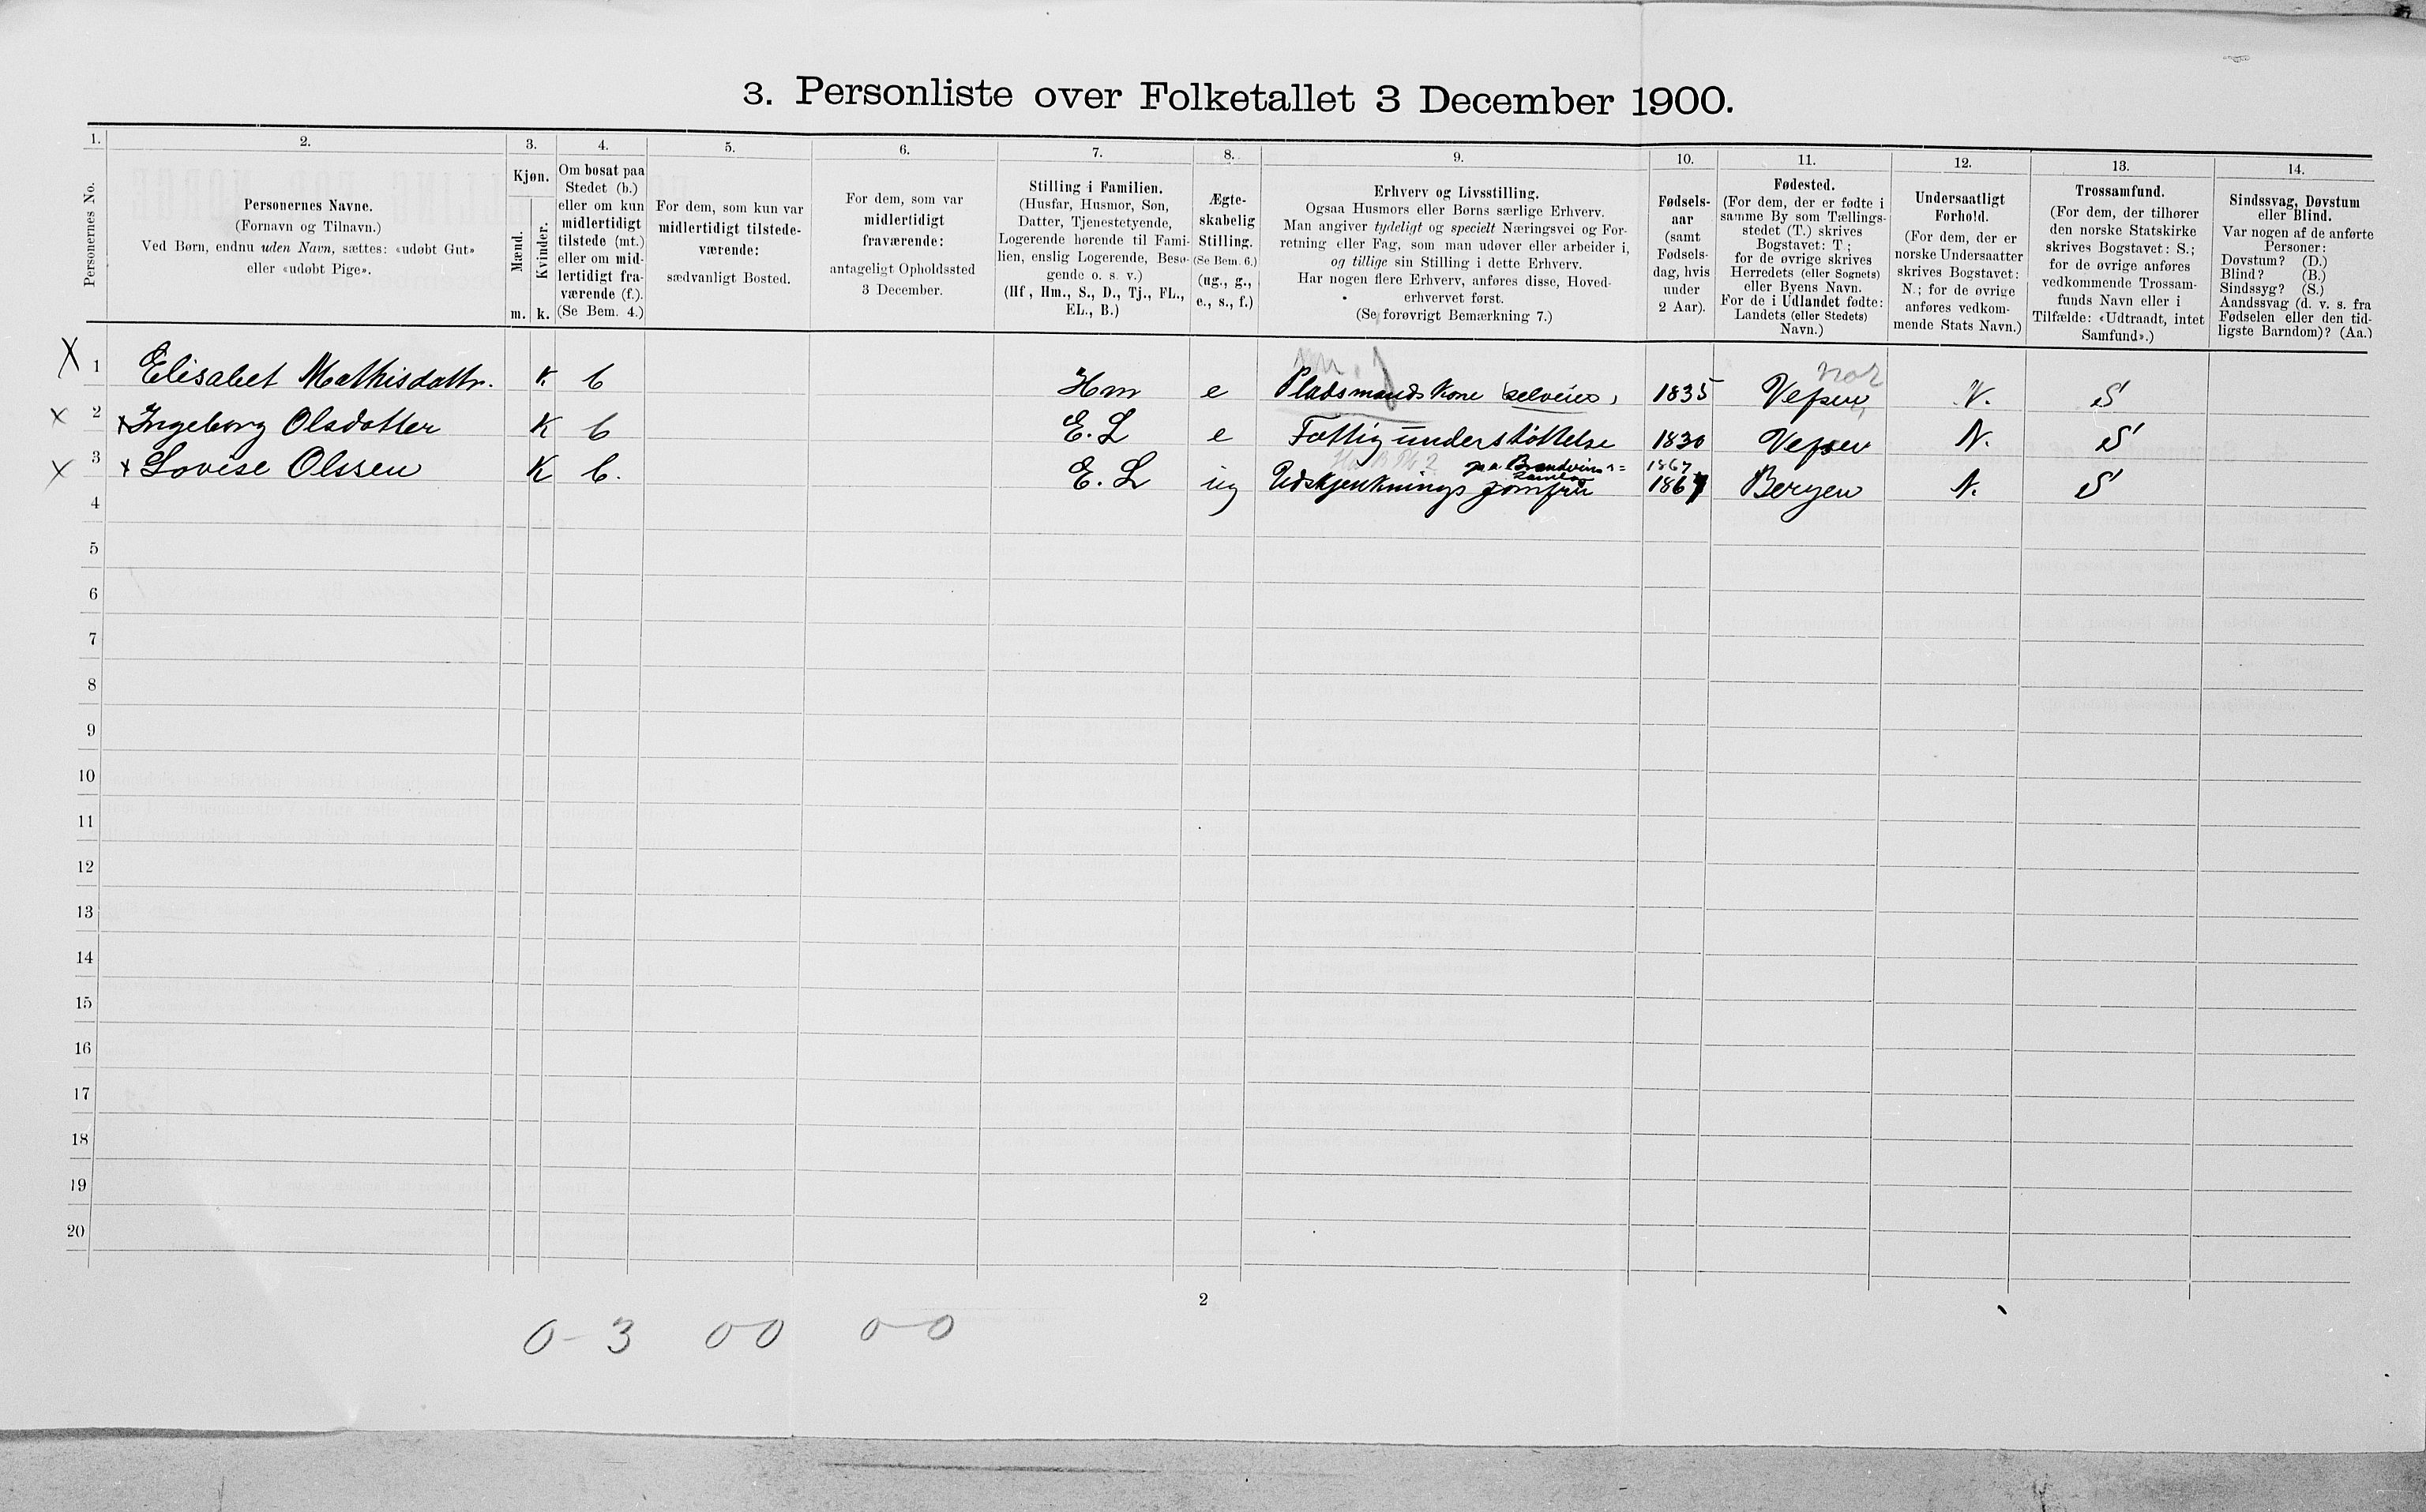 3. Personliste over Folketallet 3 December 1900.
1. 2. 3. 4. 5. 6. 7. 8. 9. 10. 11. 12. 13. 14.
Personernes No.
Personernes Navne.
(Fornavn og Tilnavn.)
Ved Børn, endnu uden Navn, sættes: «udøbt Gut»
eller «udøbt Pige».
Kjøn.
Mænd.
Kvinder.
m. k.
Om bosat paa
Stedet (b.)
eller om kun
midlertidigt
tilstede (mt.)
eller om mid-
lertidigt fra-
værende (f.).
(Se Bem. 4.)
For dem, som kun var
midlertidigt tilstede-
værende:
sædvanligt Bosted.
For dem, som var
midlertidigt
fraværende:
antageligt Opholdssted
3 December.
Stilling i Familien.
(Husfar, Husmor, Søn,
Datter, Tjenestetyende,
Logerende hørende til Fami-
lien, enslig Logerende, Besø-
gende o. s. v.)
(Hf, Hm., S., D., Tj., FL.,
EL., B.)
Ægte-
skabelig
Stilling.
(Se Bem. 6.)
(ug., g.,
e., s., f.)
Erhverv og Livsstilling.
Ogsaa Husmors eller Børns særlige Erhverv.
Man angiver tydeligt og specielt Næringsvei og For-
retning eller Fag, som man udøver eller arbeider i,
og tillige sin Stilling i dette Erhverv.
Har nogen flere Erhverv, anføres disse, Hoved-
erhvervet først.
(Se forøvrigt Bemærkning 7.)
Fødsels-
aar
(samt
Fødsels-
dag, hvis
under
2 Aar).
Fødested.
(For dem, der er fødte i
samme By som Tællings-
stedet (T.) skrives
Bogstavet: T.;
for de øvrige skrives
Herredets (eller Sognets)
eller Byens Navn.
For de i Udlandet fødte:
Landets (eller Stedets)
Navn.)
Undersaatligt
Forhold.
(For dem, der er
norske Undersaatter
skrives Bogstavet:
N.; for de øvrige
anføres vedkom-
mende Stats Navn.)
Trossamfund.
(For dem, der tilhører
den norske Statskirke
skrives Bogstavet: S.;
for de øvrige anføres
vedkommende Trossam-
funds Navn eller i
Tilfælde: «Udtraadt, intet
Samfund».)
Sindssvag, Døvstum
eller Blind.
Var nogen af de anførte
Personer:
Døvstum? (D.)
Blind? (B.)
Sindssyg? (S.)
Aandssvag (d. v. s. fra
Fødselen eller den tid-
ligste Barndom)? (Aa.)
X 1 Elisabet Mathisdattr. K b Hm e Pladsmands Kone selveier, 1835 Vefsen N. S
x 2 x Ingeborg Olsdotter K b E. L e Fattig understöttelse 1830 Vefsen N. S
x 3 x Lovise Olssen K b. E. L ug Udskjenknings jomfru paa Brændevins= Samlag 1867 Bergen N. S
4
5
6
7
8
9
10
11
12
13
14
15
16
17
18
19
20
2
0-3 00 0-0